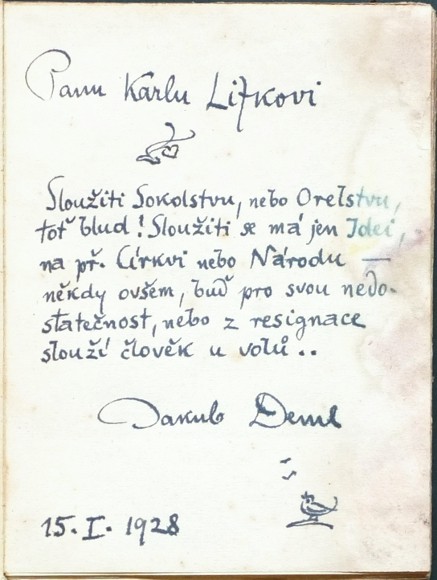 Panu Karlu Lifkovi
Sloužiti Sokolstvu, nebo Orelstvu,
toť blud! Sloužiti se má jen Idei,
na př. Církvi nebo Národu —
někdy ovšem, buď pro svou nedo-
statečnost, nebo z resignace
slouží člověk u volů..
Jakub Deml
15. I. 1928